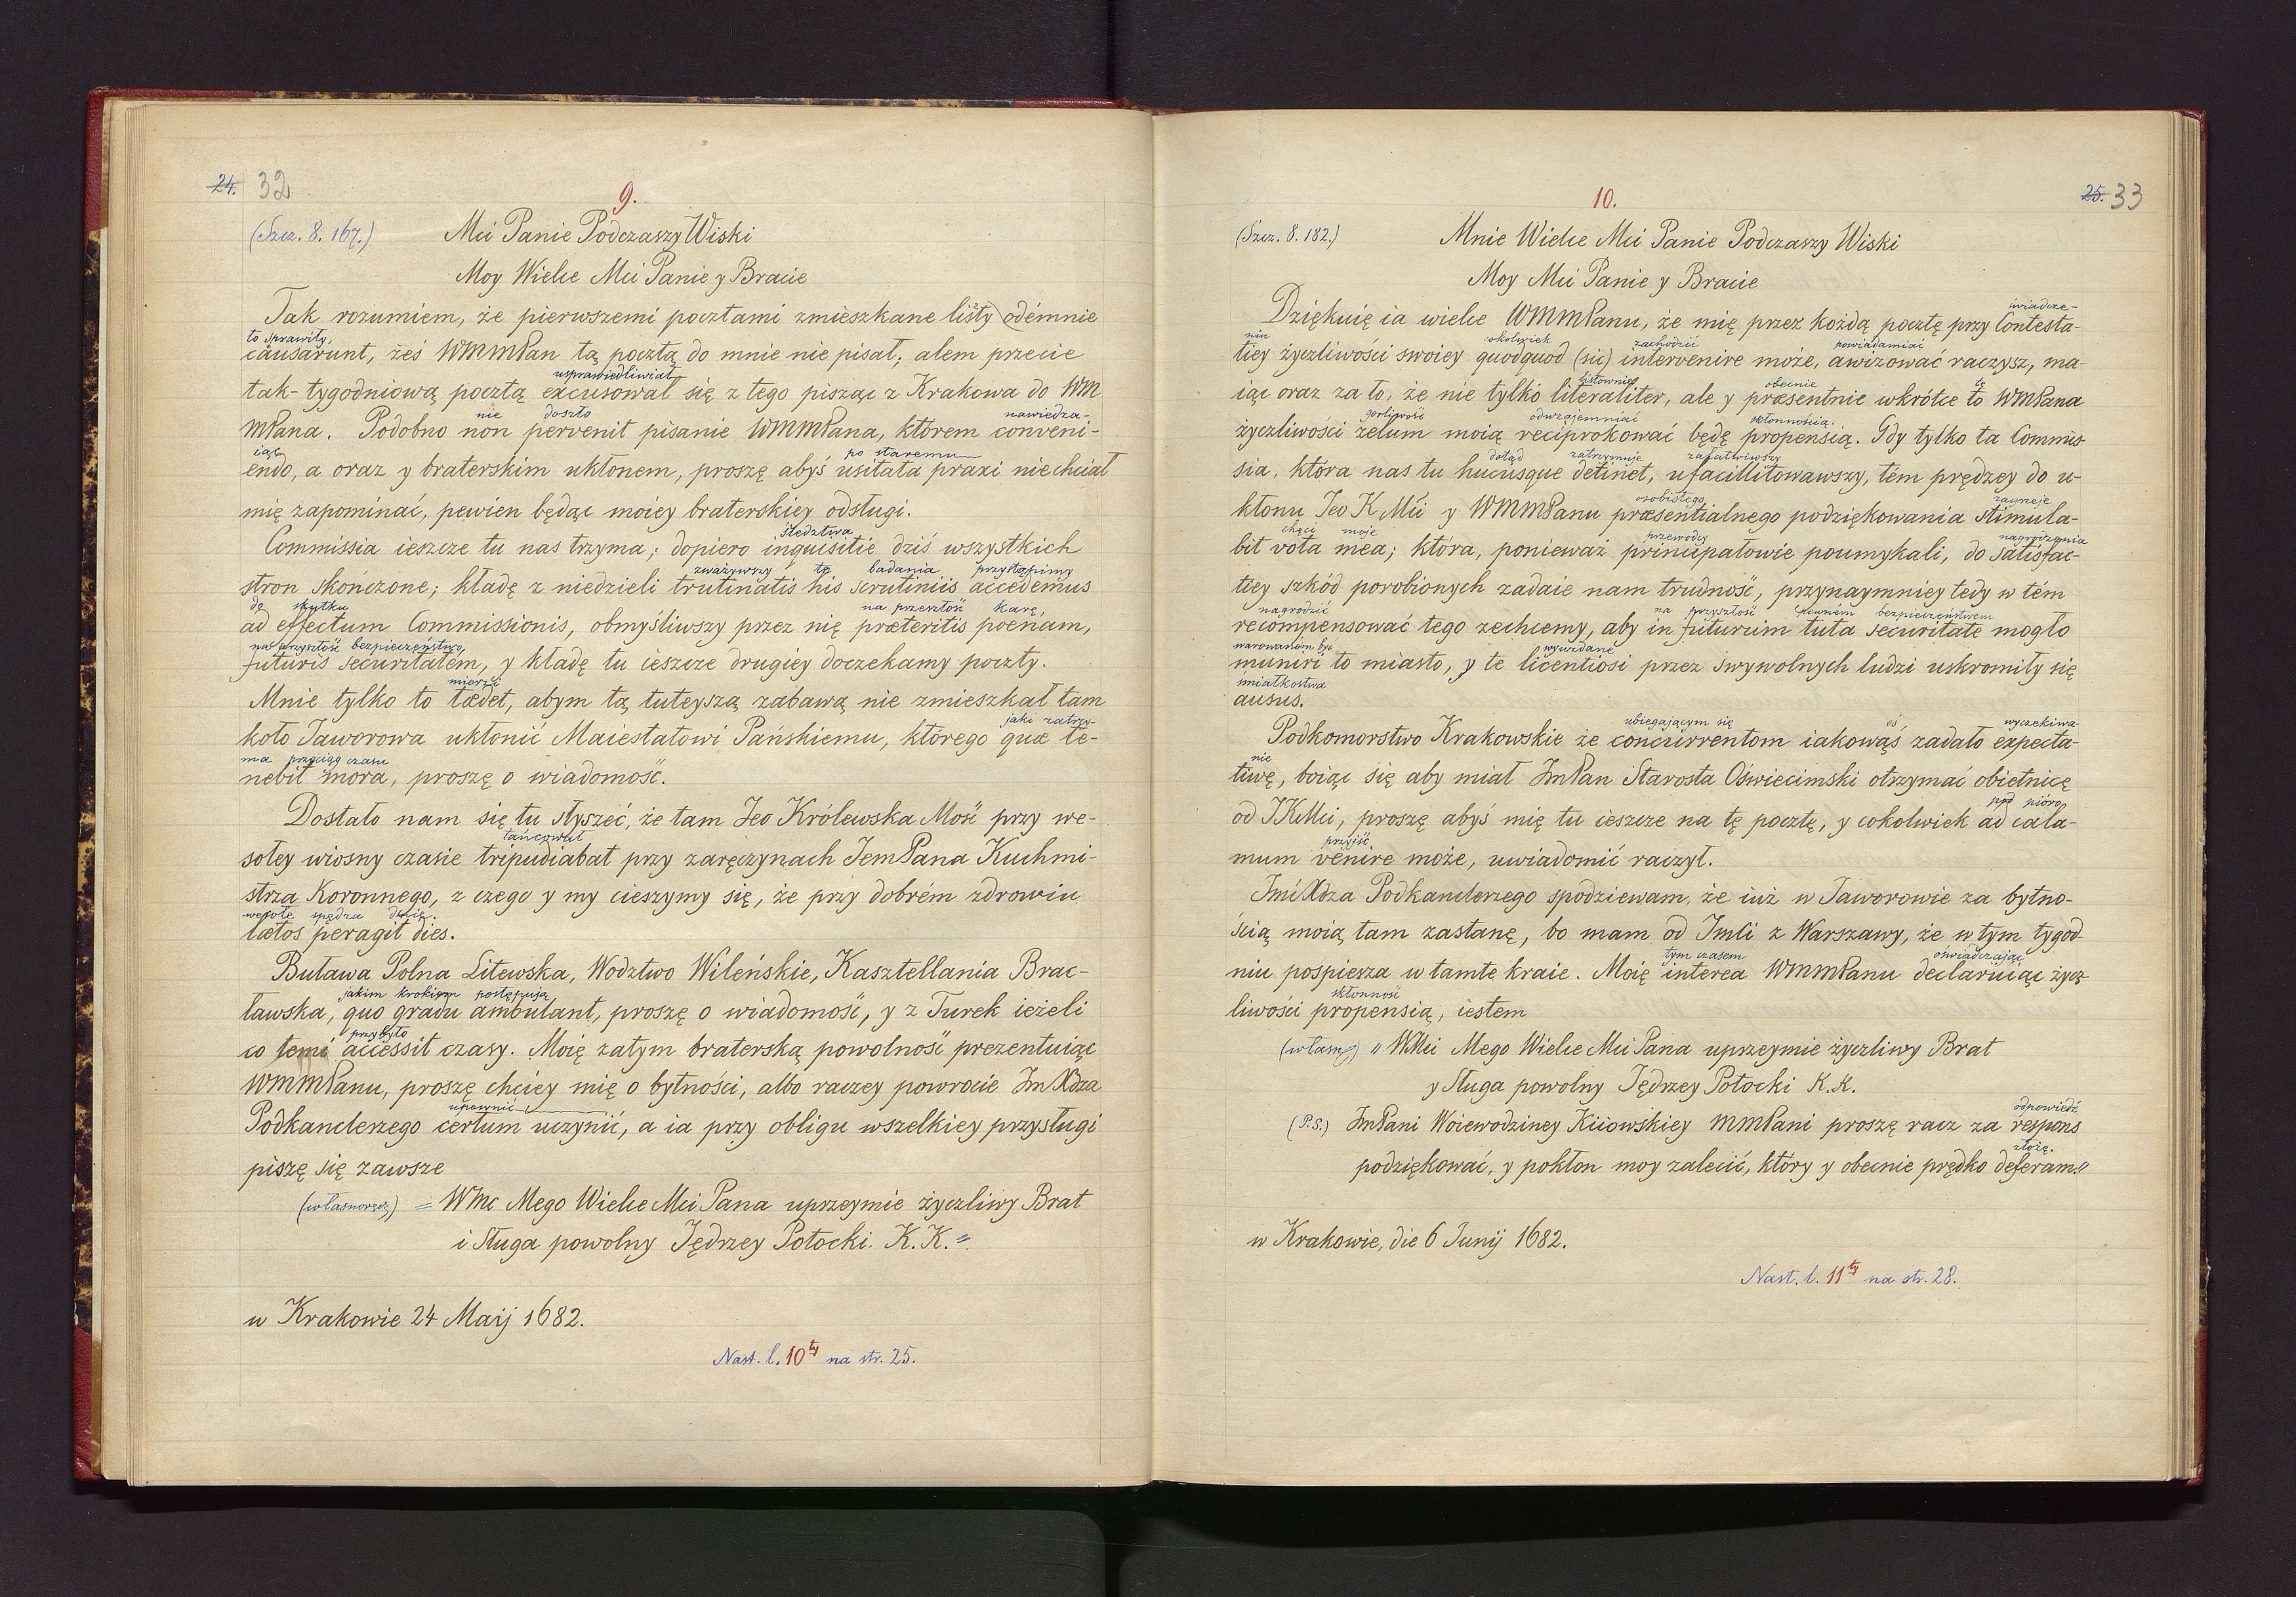 24. 32
9.
(Szcz. 8. 167.) Mci Panie Podczaszy Wiski
Moy Wielce Mci Panie y Bracie
Tak rozumiem, że pierwszemi pocztami zmieszkane listy odemnie
to sprawiły,
causarunt, żeś WMMPan tą pocztą do mnie nie pisał; alem przecie
usprawiedliwiał
tak-tygodniową pocztą excusował się z tego pisząc z Krakowa do WM
nie doszło nawiedza-
MPana. Podobno non pervenit pisanie WMMPana, którem conveni-
iąc po staremu
endo, a oraz y braterskim ukłonem, proszę abyś usitata praxi nie chciał
mię zapominać, pewien będąc moiey braterskiey odsługi.
śledztwa
Commissia ieszcze tu nas trzyma; dopiero inquisitie dziś wszystkich
zważywszy te badania przystąpimy
stron skończone; kładę z niedzieli trutinatis his scrutiniis accedemus
do skutku na przeszłość karę,
ad effectum Commissionis, obmyśliwszy przez nię præteritis poenam,
na przyszłość bezpieczeństwo,
futuris securitatem, y kładę tu ieszcze drugiey doczekamy poczty.
mierzi
Mnie tylko to tædet, abym tą tuteyszą zabawą nie zmieszkał tam
jaki zatrzy-
koło Jaworowa ukłonić Maiestatowi Pańskiemu, którego quæ te-
ma przeciąg czasu
nebit mora, proszę o wiadomość.
Dostało nam się tu słyszeć, że tam Jeo Królewska Mość przy we-
tańcował
sołey wiosny czasie tripudiabat przy zaręczynach JemPana Kuchmi-
strza Koronnego, z czego y my cieszymy się, że przy dobrém zdrowiu
wesołe spędza dnie.
lætos peragit dies.
Buława Polna Litewska, Wodztwo Wileńskie, Kasztellania Brac-
jakim krokiem postępują
ławska, quo gradu ambulant, proszę o wiadomość, y z Turek ieżeli
przybyło
co temi accessit czasy. Moię zatym braterską powolność prezentuiąc
WMMPanu, proszę chciey mię o bytności, albo raczey powrocie Jm Xdza
upewnić
Podkanclerzego certum uczynić, a ia przy obligu wszelkiey przysługi
piszę się zawsze
(własnoręcz) = WMc Mego Wielce Mci Pana uprzeymie życzliwy Brat
i sługa powolny Jędrzey Potocki. K. K. =
w Krakowie 24 Maij 1682.
Nast. l. 10ty na str. 25.
25. 33
10.
(Szcz. 8. 182.) Mnie Wielce Mci Panie Podczaszy Wiski
Moy Mci Panie y Bracie
świadcze-
Dziękuię ia wielce WMMPanu, że mię przez każdą pocztę przy Contesta-
niu cokolwiek zachodzić powiadamiać
tiey życzliwości swoiey quodquod (sic) intervenire może, awizować raczysz, ma-
listownie obecnie tę
iąc oraz za to, że nie tylko literaliter, ale y præsentnie wkrótce to WMPana
gorliwość odwzajemniać skłonnością.
życzliwości zelum moią reciprokować będę propensią. Gdy tylko ta Commis
dotąd zatrzymuje załatwiwszy
sia, która nas tu hucusque detinet, ufacillitowawszy, tém prędzey do u-
osobistego zagrzeje
kłonu Jeo K Mci y WMMPanu præsentialnego podziękowania stimula-
chęci moje przewódcy nagrodzenia
bit vota mea; która, ponieważ principałowie poumykali, do satisfac-
tiey szkód porobionych zadaie nam trudność, przynaymniey tedy w tém
nagrodzić na przyszłość pewném bezpieczeństwem
recompensować tego zechcemy, aby in futurum tuta securitate mogło
warowaném być wyuzdane
muniri to miasto, y te licentiosi przez swywolnych ludzi uskromiły się
śmiałkostwa
ausus.
ubiegającym się eś wyczekiwa-
Podkomorstwo Krakowskie że concurrentom iakowąś zadało expecta-
nie
tiwę, boiąc się aby miał JmPan Starosta Oświecimski otrzymać obietnicę
pod pióro
od JKMci, proszę abyś mię tu ieszcze na tę pocztę, y cokolwiek ad cala-
przyjść
mum venire może, uwiadomić raczył.
JmciXdza Podkanclerzego spodziewam, że iuż w Jaworowie za bytno-
ścią moią tam zastanę, bo mam od Jmci z Warszawy, że w tym tygod-
tym czasem oświadczając
niu pospiesza w tamte kraie. Moię interea WMMPanu declaruiąc życz
skłonność
liwości propensią, iestem
(własn) " WMci Mego Wielce Mci Pana uprzeymie życzliwy Brat
y sługa powolny Jędrzey Potocki K.K.
odpowiedź
(P.S.) JmPani Woiewodziney Kiiowskiey MMPani proszę racz za respons
złożę.
podziękować, y pokłon moy zalecić, który y obecnie prędko deferam."
w Krakowie, die 6 Junij 1682.
Nast. l. 11ty na str. 28.